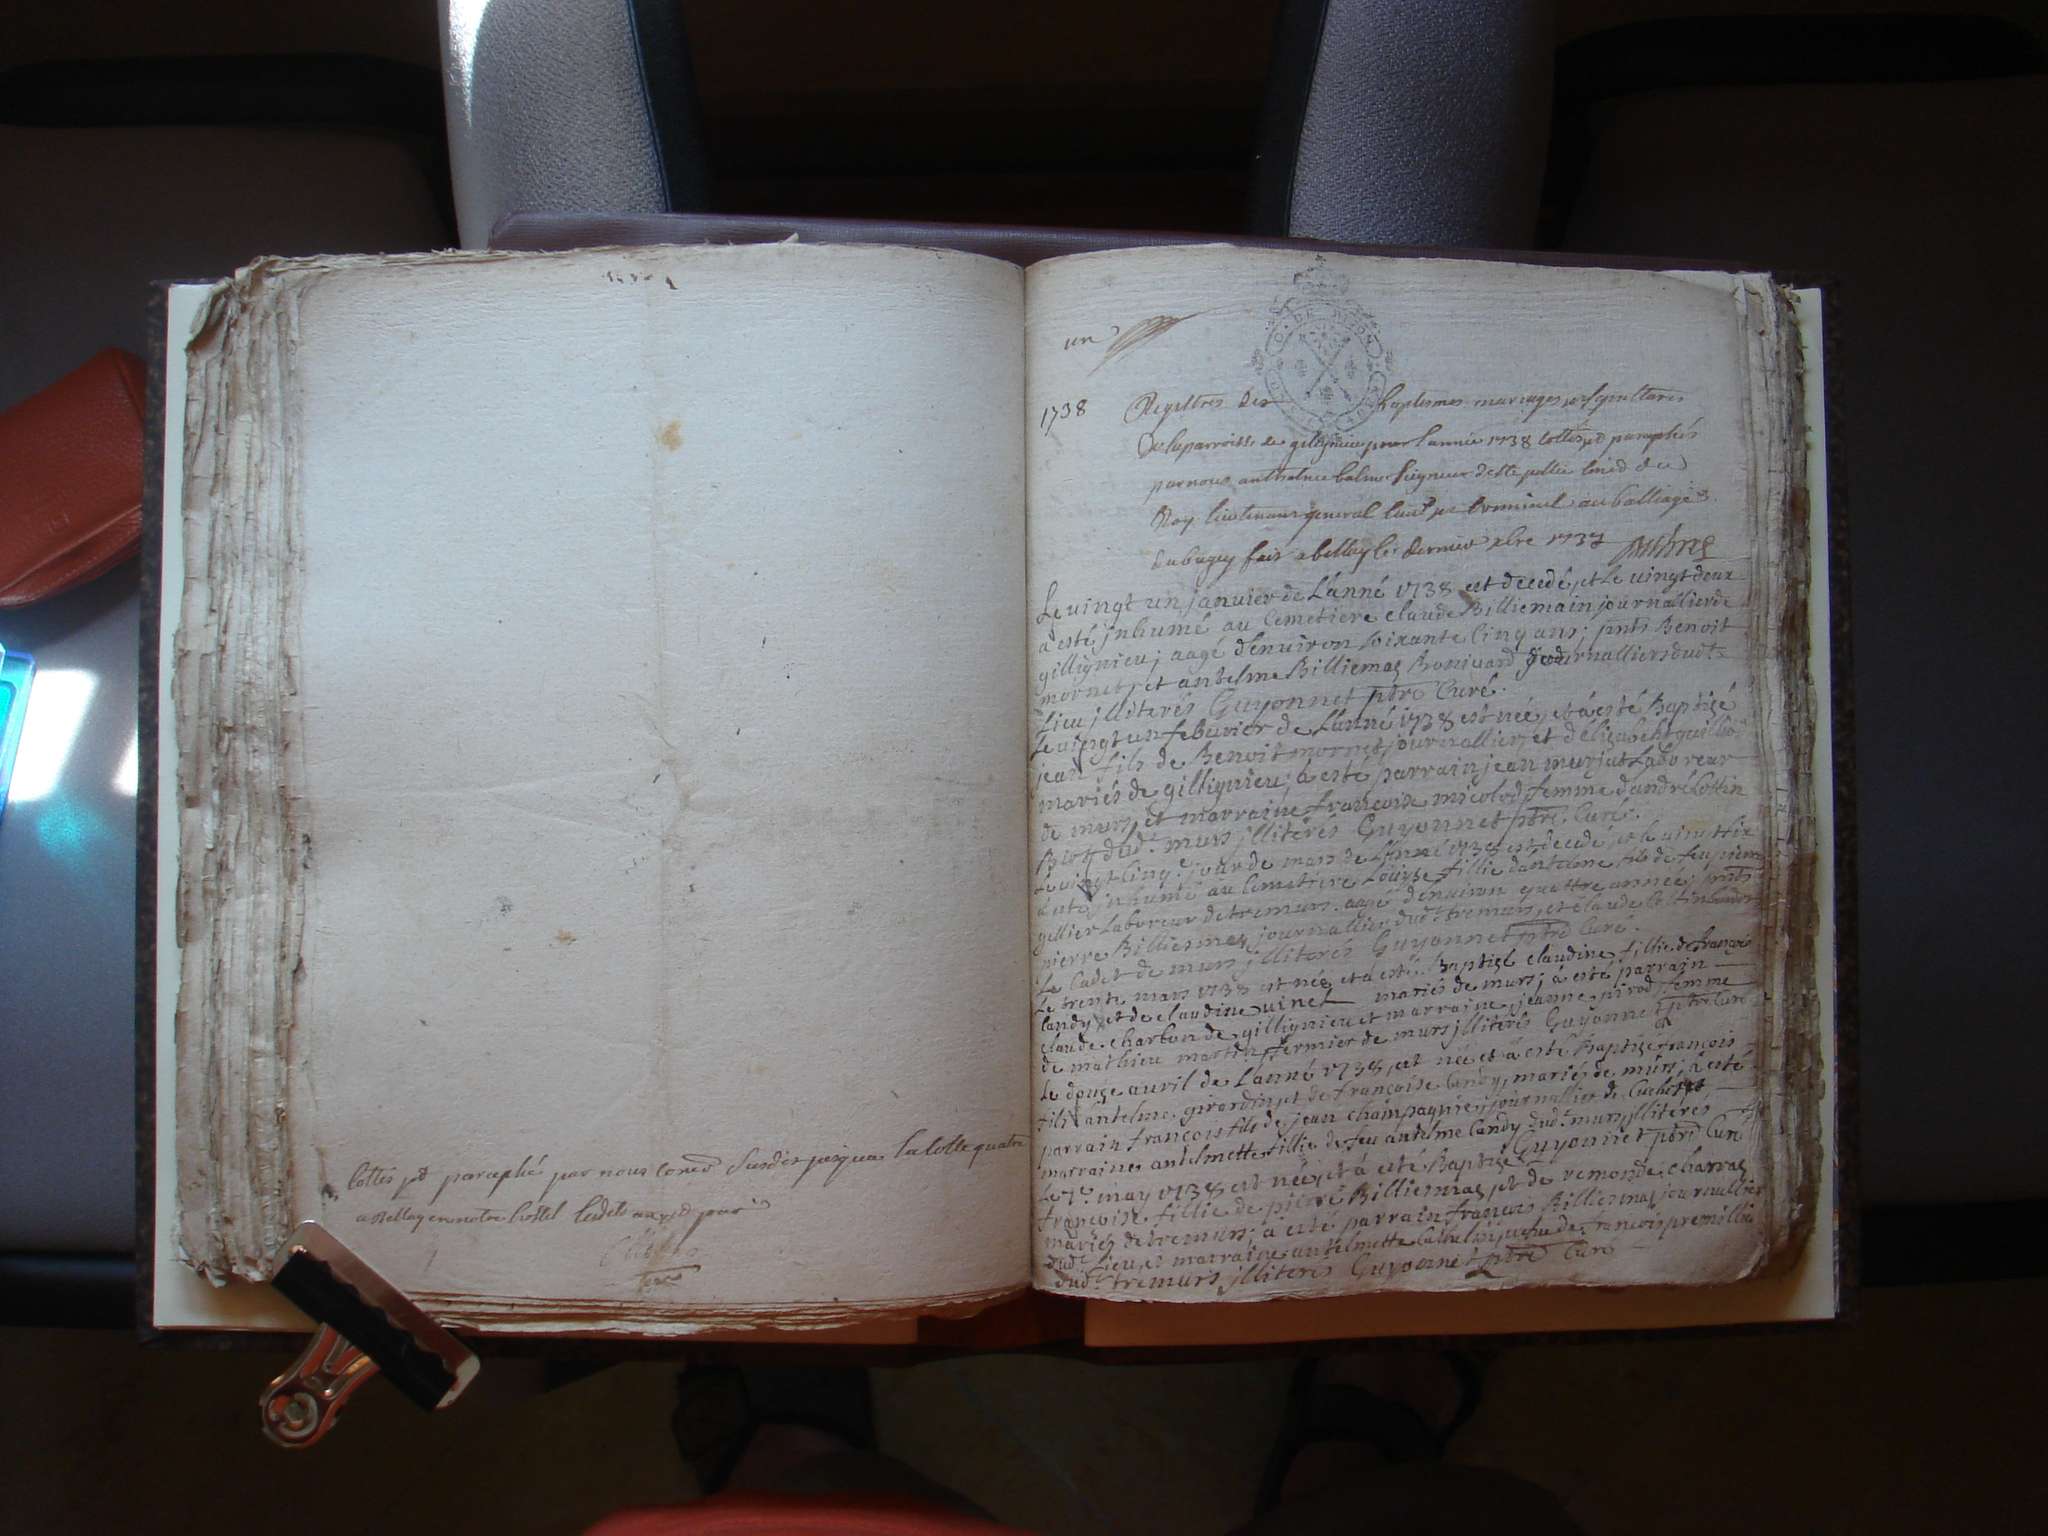 Cottés et paraphé par nous conr susdit jusqua la cotte quatre
a Bellay en notre hostel lesdits an et jour
un
1738
Registres des baptesmes mariages et sepultures
de la parroisse de gillignieu pour l'année 1738 cottés et paraphés
par nous anthelme balme seigneur de Ste pollie conser du
Roy lieutenant general civil et criminel au balliage
du bugey fait a bellay le dernier xbre 1737
Le vingt un janvier de L'anné 1738 est decedé, et Le vingt deux
à esté jnhumé au Cemetiere claude Billiemain journallier de
gillignieu; aagé d'enuiron soixante cinq ans; pnts Benoit
mornet, et antelme Billiemaz Boniuard journalliers dudt
Lieu jlliterés Guyonnet ptre Curé.
Le vingt un febvrier de L'anné 1738 est née, et à esté Baptisé
jean fils de Benoit mornet journallier, et d'elisabeht guilliod
mariés de gillignieu; à esté parrain jean murjat Laboreur
de murs, et marraine françoise micolod femme d'andré Cottin
dud. murs jlliterés Guyonnet ptre Curé.
Le vingt cinq.e jour de mars de L'anné 1738 est decedé, et le vingt six
à esté jnhumé au Cemetiere Louyse fillie d'antelme fils de feu pierre
gellier Laboreur de tremurs, aagé d'enuiron quattre année; pnts
pierre Billiemaz journallier dud. tremurs, et claude Cottin
Le Cadet de murs jlliterés Guyonnet ptre Curé.
Le trente mars 1738 est née et à esté Baptisé claudine fillie de françois
Candy, et de claudine vinet mariés de murs; à esté parrain
claude charbon de gillignieu et marraine jeanne pirod femme
de mathieu martin fermier de murs jlliterés Guyonnet ptre Curé
Le douze auril de L'anné 1738, est née et à esté Baptisé françois
fils antelme girardin, et de françoise Candy, mariés de murs; à esté
parrain françois fils de jean champagnie, journallier de
marraine antelmette fillie de feu antelme Candy dud. murs jlliterés
Guyonnet ptre Curé
Le 7e may 1738 est née, et à esté Baptisé
françoise fillie de pierre Billiemaz, et de remonde charraz
mariés de tremurs; à esté parrain françois Billiemaz journallier
dud. Lieu, et marraine antelmette veufue de françois premillieu
dud. tremurs jlliterés Guyonnet ptre Curé